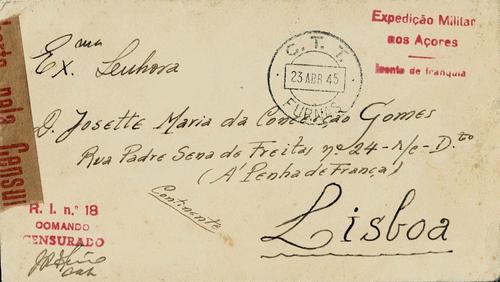 Expedição Militar
aos Açores
Isento de franquia
C. T. T.
23 ABR 45
FURNAS
Ex.ma Senhora
D. Josette Maria da Conceição Gomes
Rua Padre Sena de Freitas nº 24-r/c-D.to
(À Penha de França)
Continente
Lisboa
pela Censur
R. I. n.º 18
COMANDO
CENSURADO